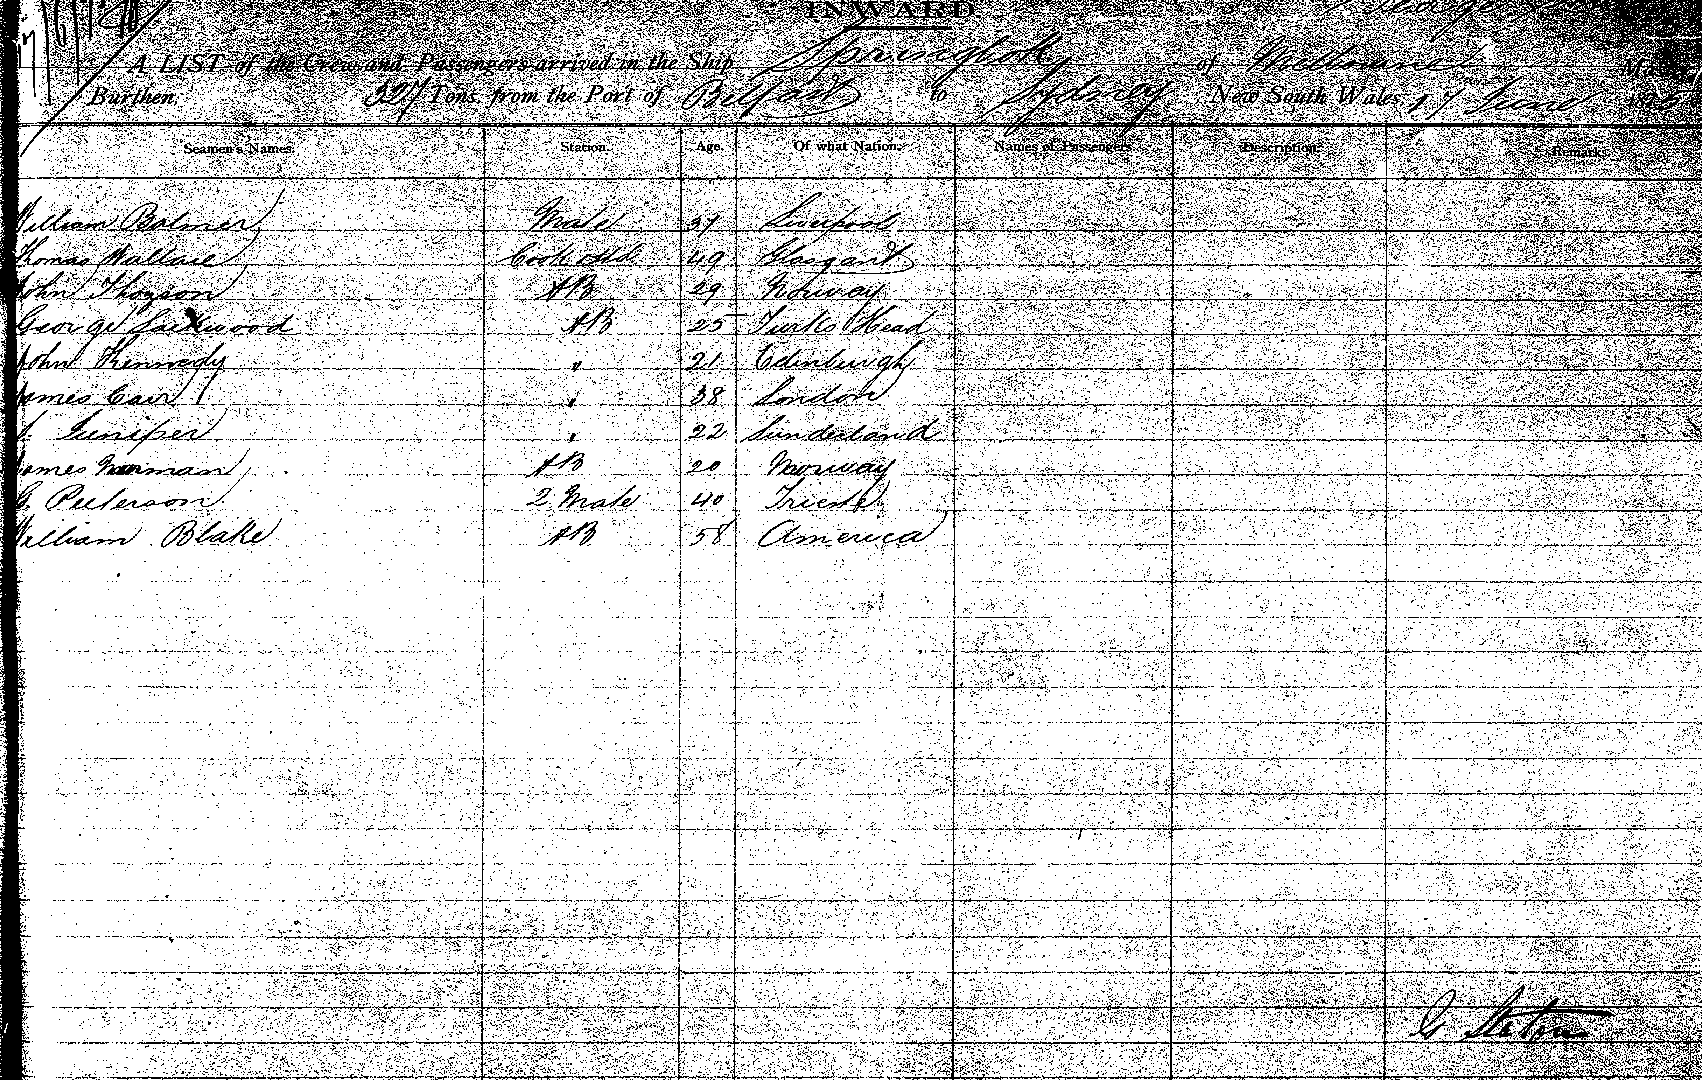 INWARD
A LIST of the Crew and Passengers arrived in the Ship Springbok of Melbourne
Burthen, 327 Tons, from the Port of Belfast to Sydney New South Wales, 17 June
Seamen's Names. Station. Age. Of what Nation. Names of Passengers Description. Remarks
William Balmer Mate 37 Liverpool
Thomas Wallace Cook 49
John Thogson AB 29 Norway
George AB 25 Turks Head
John Kennedy " 21 Edinburgh
James Cair " 38 London
Juniper " 22 Sunderland
James Norman AB 20 Norway
Peterson 2 Mate 40 Trieste
William Blake AB 58 America
G